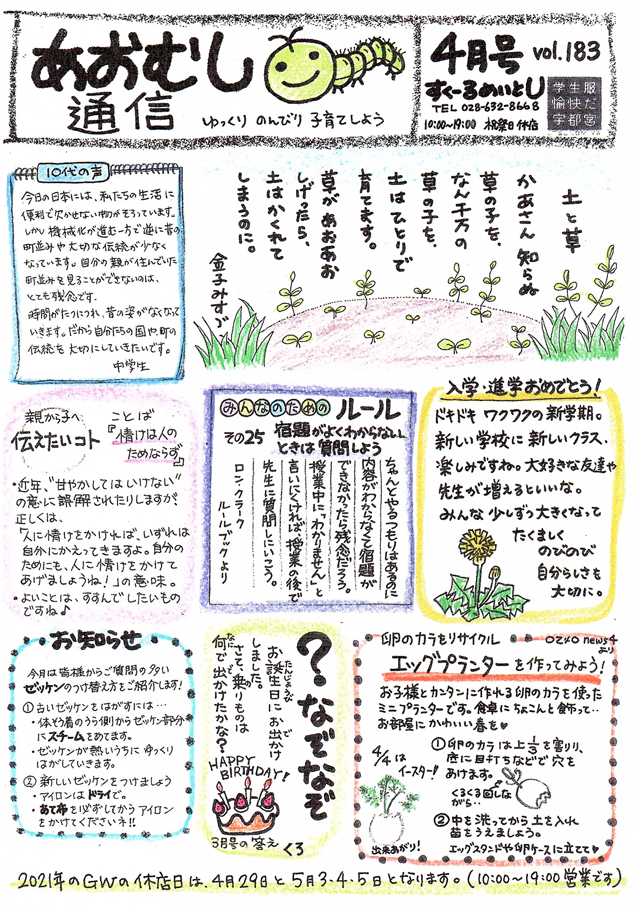 あおむし
通信
ゆっくり のんびり 子育てしよう
4月号 vol.183
すくーるめいとU
TEL 028-632-8668
10:00~19:00 祝祭日休店
学生服
愉快だ
宇都宮
10代の声
今日の日本には、私たちの生活に
便利で欠かせない物がそろっています。
しかし機械化が進む一方で逆に昔の
町並みや大切な伝統が少なく
なっています。自分の親が住んでいた
町並みを見ることができないのは、
とても残念です。
時間がたつにつれ、昔の姿がなくなって
いきます。だから自分たちの国や、町の
伝統を大切にしていきたいです。
中学生
土と草
かあさん知らぬ
草の子を、
なん千万の
草の子を、
土はひとりで
育てます。
草があおあお
しげったら、
土はかくれて
しまうのに。
金子みすゞ
親から子へ
伝えたいコト
ことば
『情けは人の
ためならず』
・近年、"甘やかしてはいけない"
の意に誤解されたりしますが、
正しくは、
「人に情けをかければ、いずれは
自分にかえってきますよ。自分の
ためにも、人に情けをかけて
あげましょうね!」の意味。
・よいことは、すすんでしたいもの
ですね♪
みんなのための ルール
その25 宿題がよくわからない
ときは質問しよう
ちゃんとやるつもりはあるのに
内容がわからなくて宿題が
できなかったら残念だろう。
授業中に「わかりません」と
言いにくければ、授業の後で
先生に質問しにいこう。
ロン・クラーク
ルールブックより
入学・進学おめでとう!
ドキドキ ワクワクの新学期。
新しい学校に新しいクラス、
楽しみですね。大好きな友達や
先生が増えるといいな。
みんな少しずつ大きくなって
たくましく
のびのびで
自分らしさも
大切に。
お知らせ
今月は皆様からご質問の多い
ゼッケンのつけ替え方をご紹介します!
①古いゼッケンをはがすには…
・体操着のうら側からゼッケン部分
にスチームをあてます。
・ゼッケンが熱いうちにゆっくり
はがしていきます。
②新しいゼッケンをつけましょう
・アイロンはドライで。
・あて布を必ずしてからアイロン
をかけてくださいネ!!
?なぞなぞ
お誕生日にお出かけ
たんじょうび
しました。
さて、乗りものは
何で出かけたかな?
なに
HAPPY
BIRTHDAY!
3月号の答え くろ
卵のカラをリサイクル
OZKO news4
より
エッグプランターを作ってみよう!
お子様とカンタンに作れる卵のカラを使った
ミニプランターです。食卓にちょこんと飾って…
お部屋にかわいい春を♥
4/4は
イースター!!
①卵のカラは上1/3を割り、
底に目打ちなどで穴を
あけます。
くるくる回しな
がら…
②中を洗ってから土を入れ
苗をうえましょう。
エッグスタンドや卵ケースに立てて♥
出来あがり!
2021年のGWの休店日は、4月29日と5月3・4・5日となります。(10:00~19:00営業です)